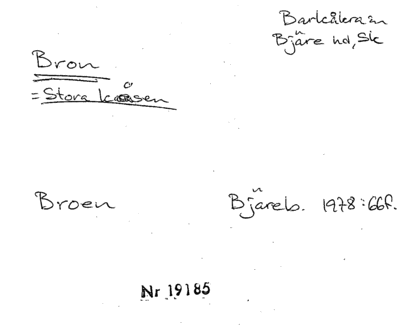 Barkåkra sn
Bjäre hd, Sk
Bron
= Stora kåsen
Broen Bjäreb. 1978:66f.
Nr 19185